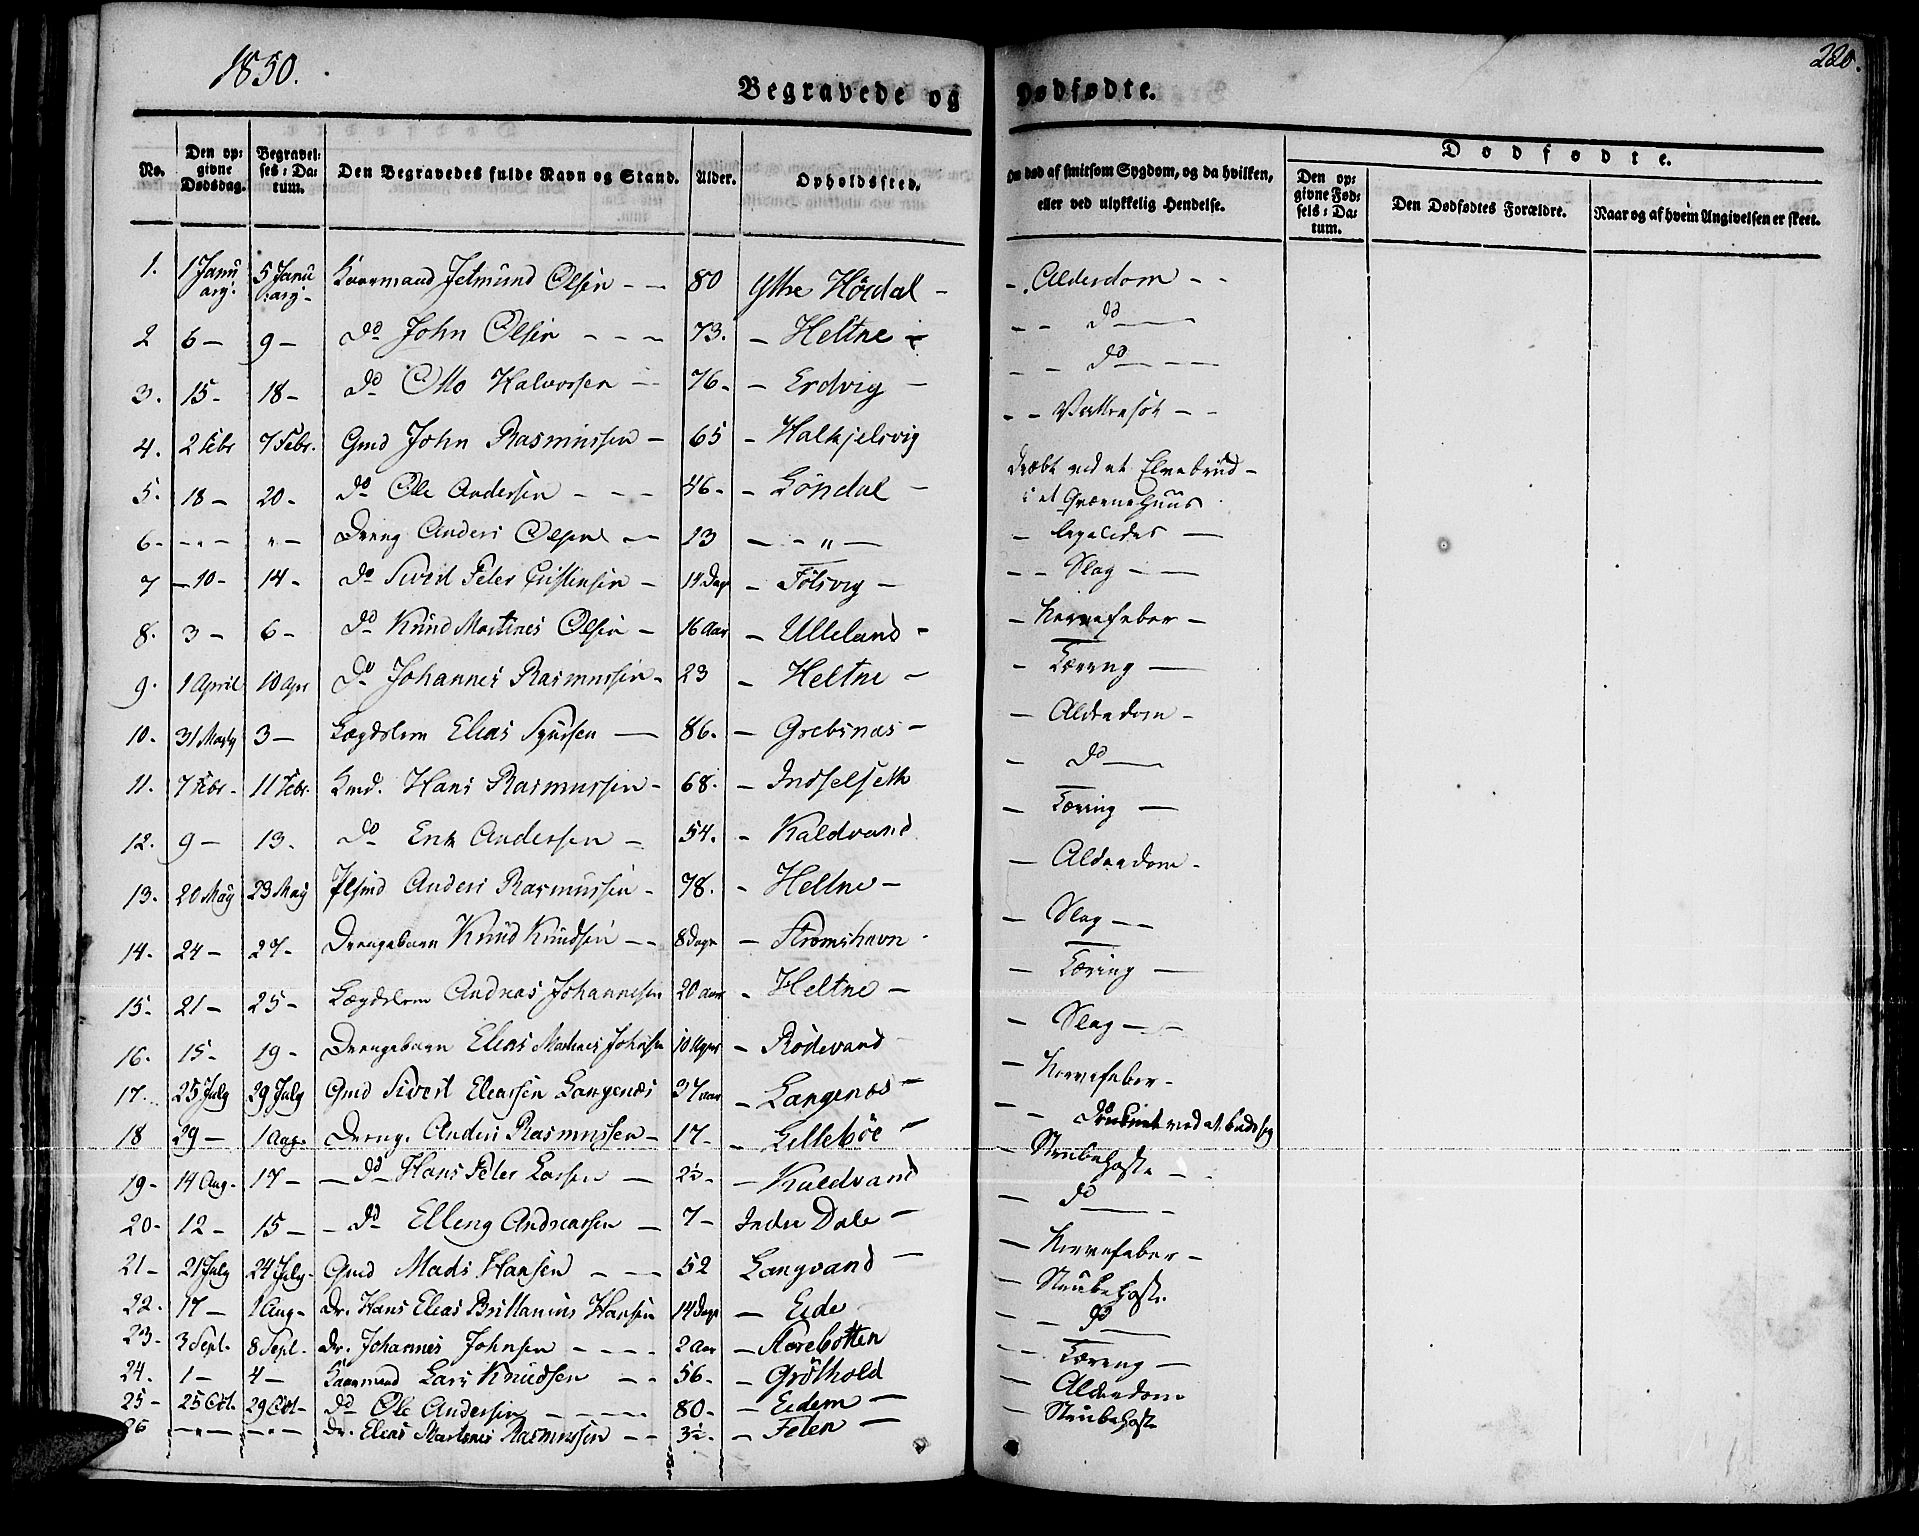 1850.
220.
Begravede og Dødfødte.
No.
Den opgivne Dødsdag.
Begravelses-Datum.
Den Begravedes fulde Navn og Stand.
Alder.
Opholdssted.
Om død af smitsom Sygdom, og da hvilken, eller ved ulykkelig Hendelse.
Dødfødte.
Den opgivne Fødsels-Datum.
Den Dødfødtes Forældre.
Naar og af hvem Angivelsen er skeet.
1. 1 Januarij. 5 Januarij - Kaarmand Jetmund Olsen - - 80 Ytre Hördal - - Alderdom - -
2 6 - 9 - do John Olsen - - - 73. - Heltne - - - do -
3. 15 - 18 - do Otto Halvorsen - 76. - Erdvig - - - do - -
4. 2 Febr 7 Febr. Gmd John Rasmussen - 65 - Halkjelsvig - - Vattersot - -
5. 18 - 20 - do Ole Andersen - - - 46 - - Löndal - dræbt ved et Elvebrud - i et Qværnehuus
6 - - " - " - Dreng Anders Olsen - - 13 - - " - - ligeledes -
7 - 10 - 14 - do Sivert Peter Cristensen - 14 Dage - Tölsvig - - - Slag - -
8. 3 - 6 - do Knud Martines Olsen - 16 Aar - Ulleland - - Nervefeber -
9. 1 April 10 Apr do Johannes Rasmussen - 23 - Heltne - - Tæring -
10. 31 Marts 3 - Lægdslem Elias Syvrsen - 86. - Grebsnæs - - Alderdom -
11. 7 Febr. 11 Febr. Kmd. Hans Rasmussen - 68. - Indselseth - do -
12. 9 - 13 - do Erik Andersen - 54. - Kaldvand - Tæring -
13. 20 May 23 May Anders Rasmussen - 78. - Heltne - - Alderdom -
14. 24 - 27 - Drengebarn Knud Knudsen - - 8 Dage - Strömshavn - - Slag - -
15. 21 - 25 - Lægdslem Andreas Johannesen 20 aar - Heltne - - Tæring -
16. 15 - 19 - Drengebarn Elias Martines Johnsen 10 Uger - Rödevand - Slag - -
17. 25 July 29 July Gmd Sivert Eleassen Langenæs 37 aar - Langenæs - - Nervefeber -
18 29 - 1 Aug. Dreng. Anders Rasmussen - 17 - - Lilleböe - - - Druknet ved at bade sig
19 - 14 Aug. 17 - - do Hans Peter Larsen - 2½ - - Kaldvand - Strubehoste -
20 - 12 - 15 - - do Elling Andreassen - 7 - Indre Dale - - do -
21 - 21 July 24 July - Gmd Mads Hansen - - - 52 Langvand - - Nervefeber -
22. 17 - 1 Aug - Dr. Hans Elias Brittanius Hansen 14 Dage - Eide - Strubehoste
23 - 3 Sept. 8 Sept. Dr. Johannes Johnsen - - - - 2 Aar - Storebotten - - do -
24. 1 - 4 - Kaarmand Lars Knudsen - - 56. - Gröthold - Tæreng -
25 - 25 Oct. 29 Oct - do Ole Andersen - - - - 80 - - Eidem - - Alderdom
26 - " - - " - Dr. Elias Martines Rasmussen - - 3½. - Felen - - Strubehoste